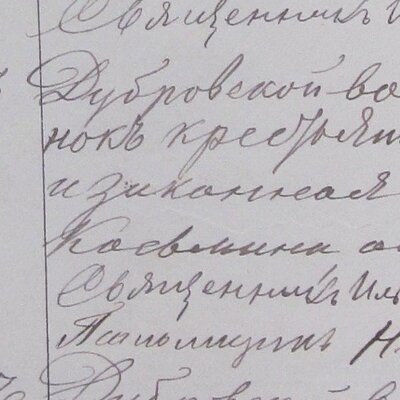 Священникъ И
Дубровской во
нокъ крестья
и законная
Косьмина
Священникъ Иль
Псаломщикъ Н
Дубровской в